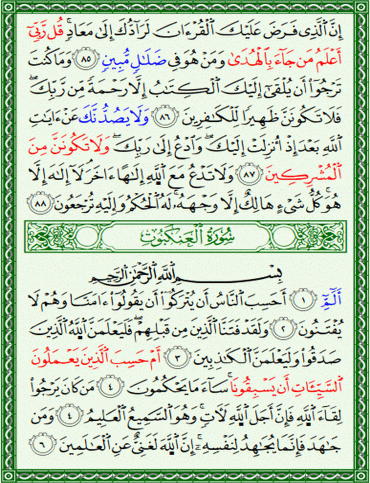 إِنَّ ٱلَّذِى فَرَضَ عَلَيْكَ ٱلْقُرْءَانَ لَرَآدُّكَ إِلَىٰ مَعَادٍ ۚ قُل رَّبِّىٓ
أَعْلَمُ مَن جَآءَ بِٱلْهُدَىٰ وَمَنْ هُوَ فِى ضَلَٰلٍ مُّبِينٍ ٨٥ وَمَا كُنتَ
تَرْجُوٓا۟ أَن يُلْقَىٰٓ إِلَيْكَ ٱلْكِتَٰبُ إِلَّا رَحْمَةً مِّن رَّبِّكَ ۖ
فَلَا تَكُونَنَّ ظَهِيرًا لِّلْكَٰفِرِينَ ٨٦ وَلَا يَصُدُّنَّكَ عَنْ ءَايَٰتِ
ٱللَّهِ بَعْدَ إِذْ أُنزِلَتْ إِلَيْكَ ۖ وَٱدْعُ إِلَىٰ رَبِّكَ ۖ وَلَا تَكُونَنَّ مِنَ
ٱلْمُشْرِكِينَ ٨٧ وَلَا تَدْعُ مَعَ ٱللَّهِ إِلَٰهًا ءَاخَرَ ۘ لَآ إِلَٰهَ إِلَّا
هُوَ ۚ كُلُّ شَىْءٍ هَالِكٌ إِلَّا وَجْهَهُۥ ۚ لَهُ ٱلْحُكْمُ وَإِلَيْهِ تُرْجَعُونَ ٨٨
سُورَةُ الْعَنكَبُوتِ
بِسْمِ ٱللَّهِ ٱلرَّحْمَٰنِ ٱلرَّحِيمِ
الٓمٓ ١ أَحَسِبَ ٱلنَّاسُ أَن يُتْرَكُوٓا۟ أَن يَقُولُوٓا۟ ءَامَنَّا وَهُمْ لَا
يُفْتَنُونَ ٢ وَلَقَدْ فَتَنَّا ٱلَّذِينَ مِن قَبْلِهِمْ ۖ فَلَيَعْلَمَنَّ ٱللَّهُ ٱلَّذِينَ
صَدَقُوا۟ وَلَيَعْلَمَنَّ ٱلْكَٰذِبِينَ ٣ أَمْ حَسِبَ ٱلَّذِينَ يَعْمَلُونَ
ٱلسَّيِّـَٔاتِ أَن يَسْبِقُونَا ۚ سَآءَ مَا يَحْكُمُونَ ٤ مَن كَانَ يَرْجُوا۟
لِقَآءَ ٱللَّهِ فَإِنَّ أَجَلَ ٱللَّهِ لَءَاتٍ ۚ وَهُوَ ٱلسَّمِيعُ ٱلْعَلِيمُ ٥ وَمَن
جَٰهَدَ فَإِنَّمَا يُجَٰهِدُ لِنَفْسِهِۦٓ ۚ إِنَّ ٱللَّهَ لَغَنِىٌّ عَنِ ٱلْعَٰلَمِينَ ٦